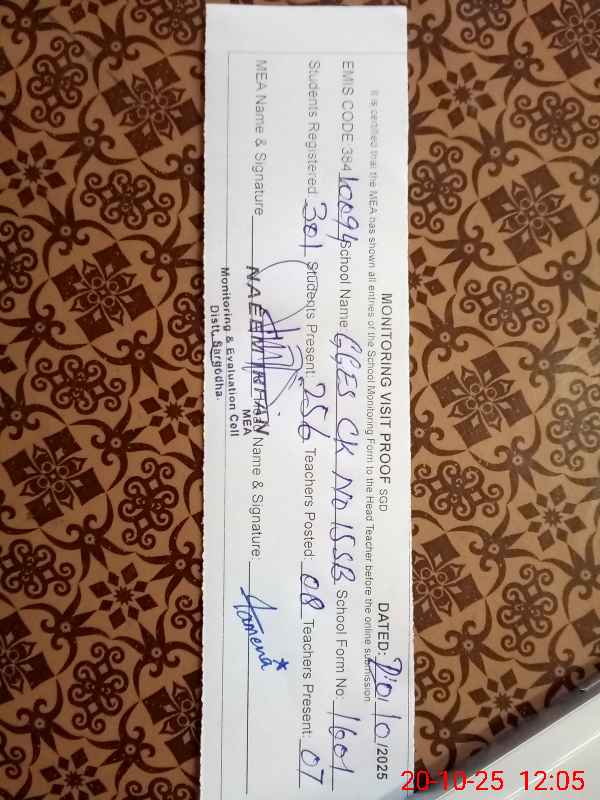 MONITORING VISIT PROOF SGD
DATED: 20/10/2025
It is certified that the MEA has shown all entries of the School Monitoring Form to the Head Teacher before the online submission
EMIS CODE 384 10094 School Name: GGES CK No 15SB School Form No: 1601
Students Registered: 301 Students Present: 256 Teachers Posted: 08 Teachers Present: 07
MEA Name & Signature Name & Signature: Hameeda
NAEEM
MEA
Monitoring & Evaluation Cell
Distt. Sargodha.
20-10-25 12:05